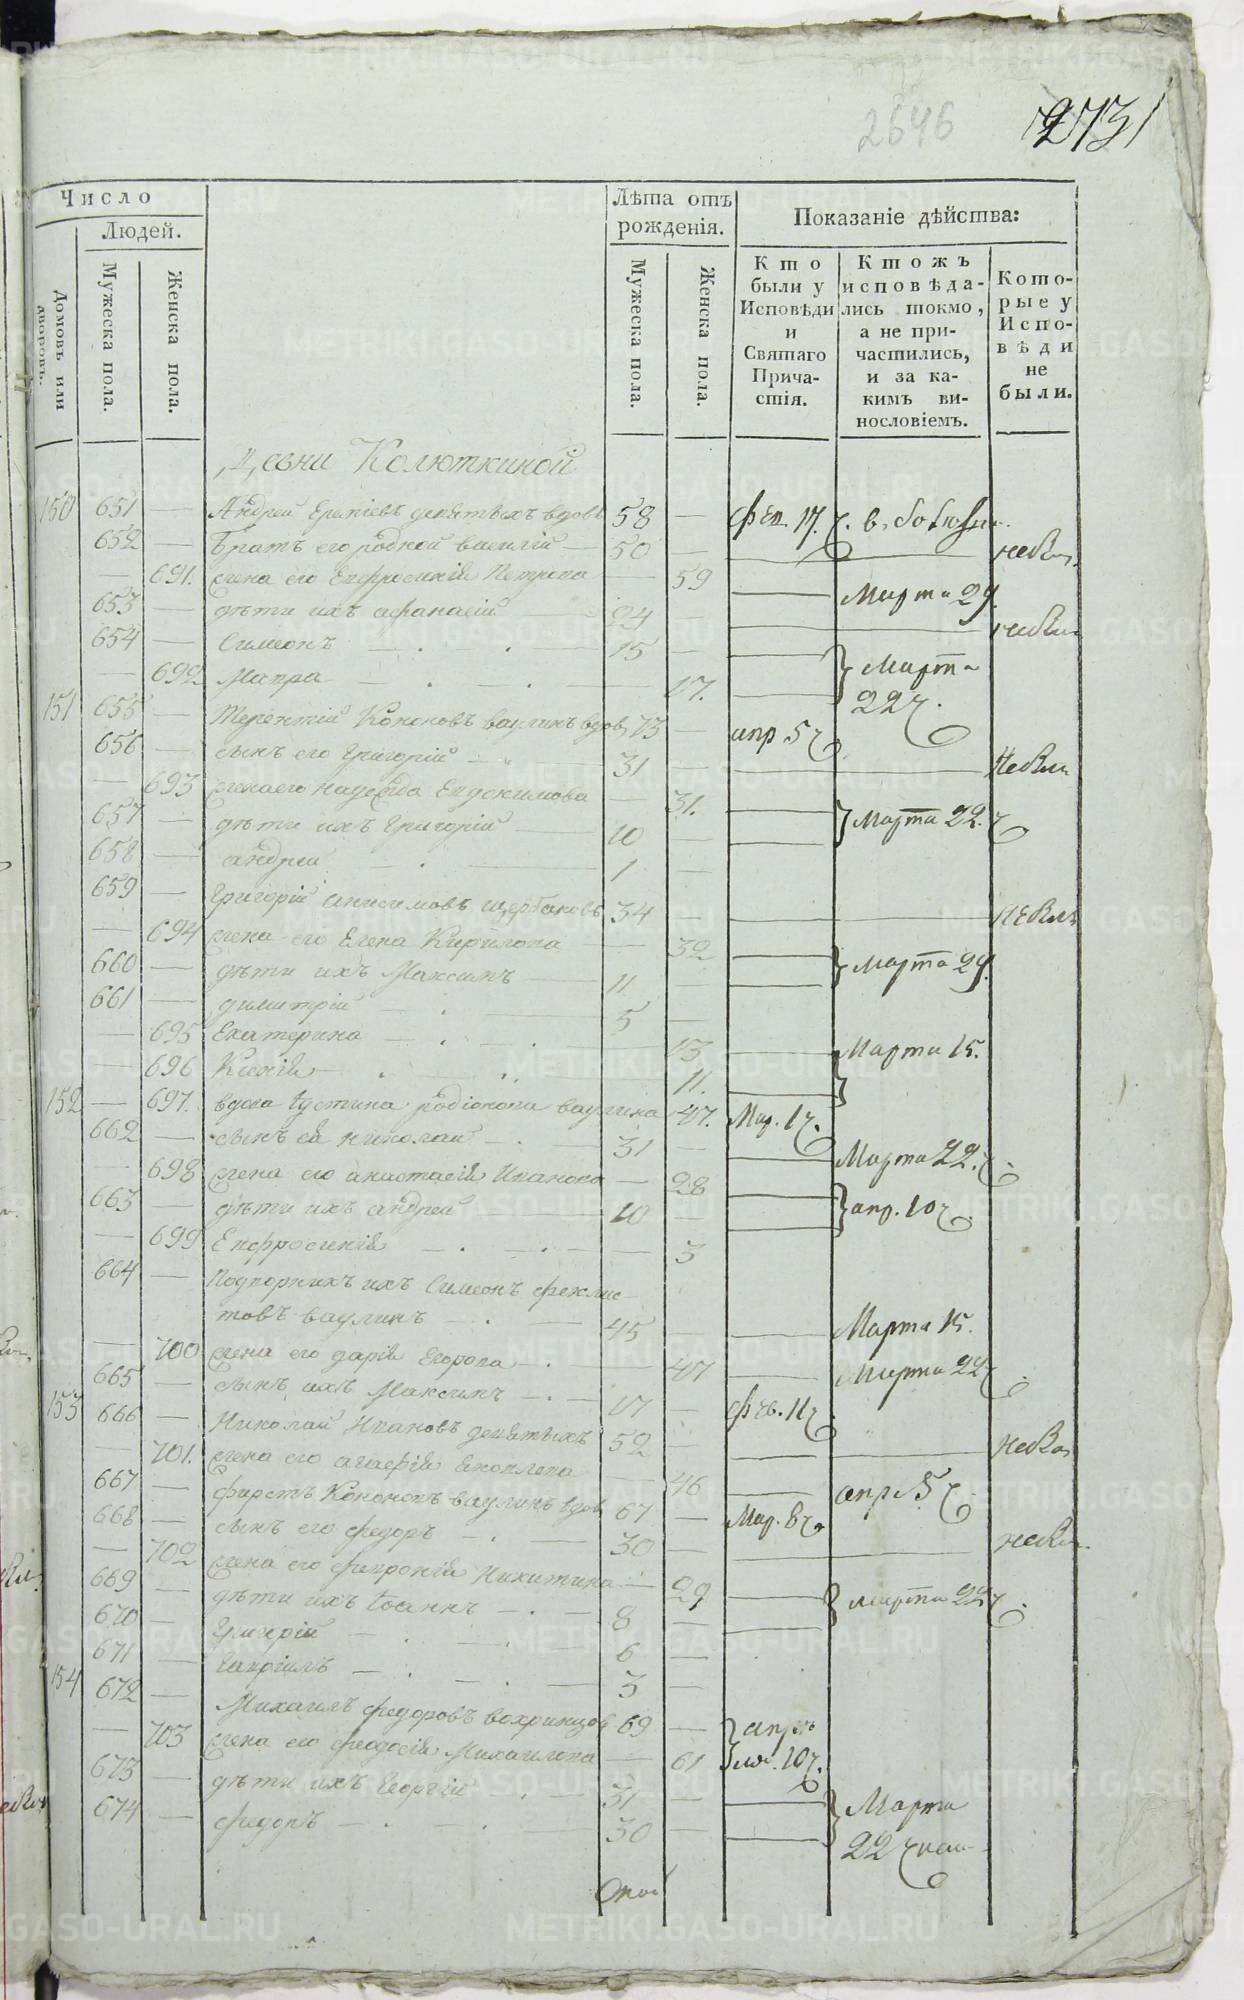 2646
2731
Число
Лѣта отъ рожденія.
Показаніе дѣйства:
Людей.
Домовъ или дворовъ.
Мужеска пола.
Женска пола.
Мужеска пола.
Женска пола.
Кто были у Исповѣди и Святаго Причастія.
Ктожъ исповѣдались токмо, а не причастились, и за какимъ винословіемъ.
Которые у Исповѣди не были.
Колюткиной
150 651 — Андрей девятыхъ вдовъ 58 —
652 — Братъ его родной василій — 50 —
— 691. жена его Евфросинія Петрова — 59 Марта 29
653 — дѣти ихъ афанасій 24 —
654 — Симеонъ 15 —
— 692 Мавра — 17. Марта 22
151 655 — Терентій Кононовъ ваулинъ вдовъ 73 — апр 5
656 — сынъ его Григорій 31 —
— 693 жена его надежда Евдокимова — 31.
657 — дѣти ихъ Григорій 10 — Марта 22.
658 — андрей 1 —
659 — Григорій анисимовъ щербаковъ 34 —
— 694 жена его Елена Кирилова — 32
660 — дѣти ихъ Максимъ 11 — Марта 29.
661 — димитрій 5 —
— 695 Екатерина — 13 Марта 15.
— 696 Ксенія — 11.
152 — 697. вдова Устина родіонова ваулина 47. Мар. 1
662 — сынъ ея николай 31 —
— 698 жена его анастасія Иванова — 28 Марта 22.
663 — дѣти ихъ андрей 10 — апр. 10
— 699 Евфросинія — 3
664 — Подворникъ ихъ Симеонъ феклис
товъ ваулинъ 45 Марта 15.
— 700 жена его дарія Егорова — 47 Марта 22
665 — сынъ ихъ Максимъ 17 —
153 666 — Николай Ивановъ девятыхъ 52 —
— 701. жена его — 46 апр 5
667 — Кононовъ ваулинъ вдовъ 67 — Мар. 8
668 — сынъ его федоръ 30 —
— 702 жена его февронія Никитина — 29
669 — дѣти ихъ Іоаннъ 8 — марта 22
670 — Григорій 6 —
671 — Гавріилъ 3 —
154 672 — Михаилъ федоровъ вохринцовъ 69 —
— 703 жена его феодосія Михаилова — 61 10
673 — дѣти ихъ Георгій 31 — Марта
674 — федоръ 30 — 22